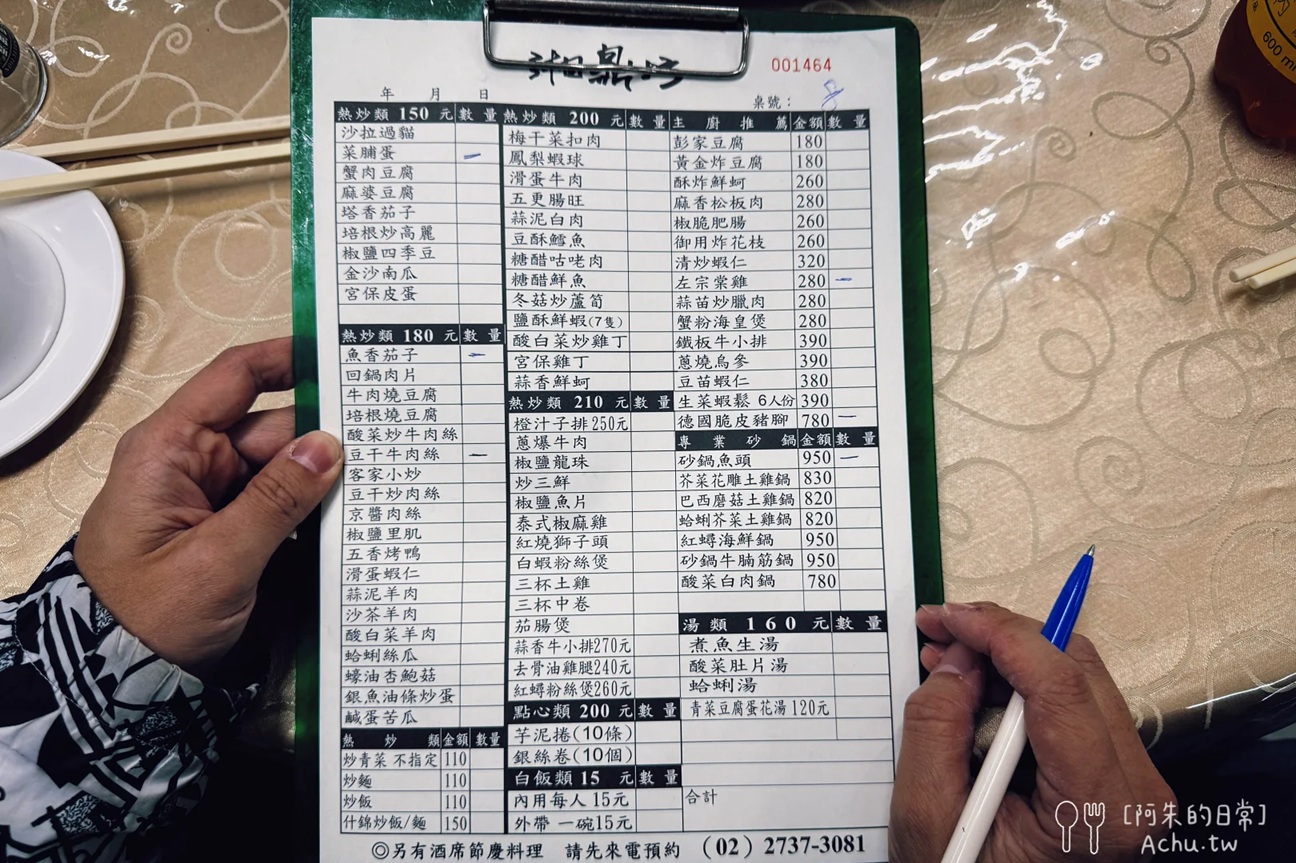 湘鼎坊
001464
年 月 日
桌號： 8
熱炒類 150 元 數量
沙拉過貓
菜脯蛋 一
蟹肉豆腐
麻婆豆腐
塔香茄子
培根炒高麗
椒鹽四季豆
金沙南瓜
宮保皮蛋
熱炒類 180 元 數量
魚香茄子 一
回鍋肉片
牛肉燒豆腐
培根燒豆腐
酸菜炒牛肉絲
豆干牛肉絲 一
客家小炒
豆干炒肉絲
京醬肉絲
椒鹽里肌
五香烤鴨
滑蛋蝦仁
蒜泥羊肉
沙茶羊肉
酸白菜羊肉
蛤蜊絲瓜
蠔油杏鮑菇
銀魚油條炒蛋
鹹蛋苦瓜
熱炒類 金額 數量
炒青菜 不指定 110
炒麵 110
炒飯 110
什錦炒飯/麵 150
熱炒類 200 元 數量
梅干菜扣肉
鳳梨蝦球
滑蛋牛肉
五更腸旺
蒜泥白肉
豆酥鱈魚
糖醋咕咾肉
糖醋鮮魚
冬菇炒蘆筍
鹽酥鮮蝦(7隻)
酸白菜炒雞丁
宮保雞丁
蒜香鮮蚵
熱炒類 210 元 數量
橙汁子排250元
蔥爆牛肉
椒鹽龍珠
炒三鮮
椒鹽魚片
泰式椒麻雞
紅燒獅子頭
白蝦粉絲煲
三杯土雞
三杯中卷
茄腸煲
蒜香牛小排270元
去骨油雞腿240元
紅蟳粉絲煲260元
點心類 200 元 數量
芋泥捲(10條)
銀絲卷(10個)
白飯類 15 元 數量
內用每人 15元
外帶 一碗15元
主廚推薦 金額 數量
彭家豆腐 180
黃金炸豆腐 180
酥炸鮮蚵 260
麻香松板肉 280
椒脆肥腸 260
御用炸花枝 260
清炒蝦仁 320
左宗棠雞 280 一
蒜苗炒臘肉 280
蟹粉海皇煲 280
鐵板牛小排 390
蔥燒烏參 390
豆苗蝦仁 380
生菜蝦鬆 6人份 390
德國脆皮豬腳 780 一
專業砂鍋 金額 數量
砂鍋魚頭 950 一
芥菜花雕土雞鍋 830
巴西蘑菇土雞鍋 820
蛤蜊芥菜土雞鍋 820
紅蟳海鮮鍋 950
砂鍋牛腩筋鍋 950
酸菜白肉鍋 780
湯類 160 元 數量
煮魚生湯
酸菜肚片湯
蛤蜊湯
青菜豆腐蛋花湯 120元
合計
◎另有酒席節慶料理 請先來電預約 (02) 2737-3081
600 ml
[阿朱的日常]
Achu.tw